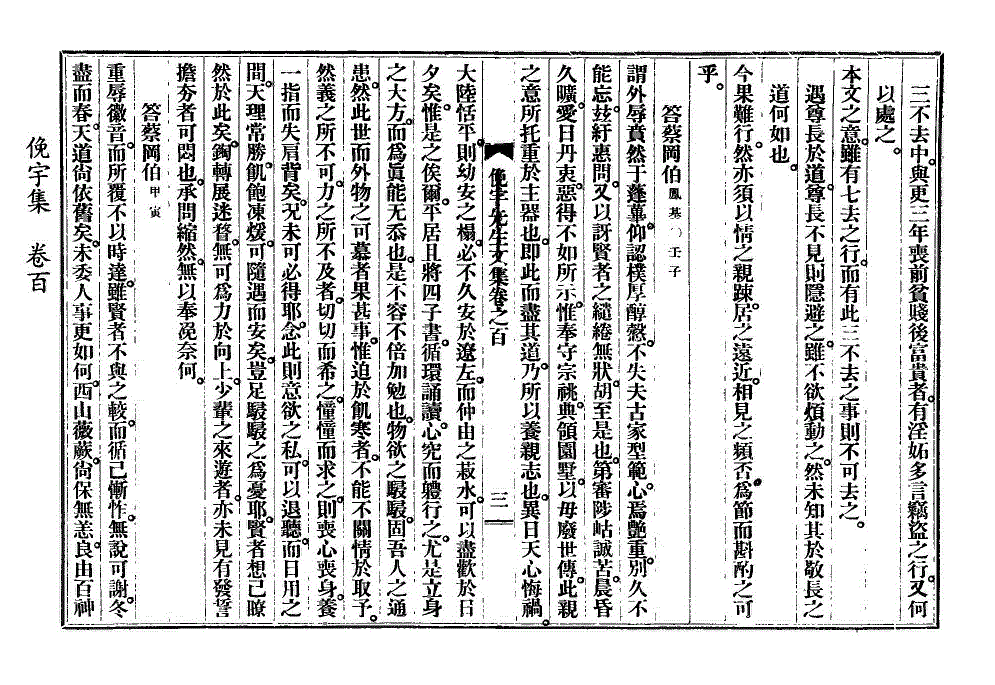 三不去中。與更三年喪前貧賤後富貴者。有淫妬多言竊盜之行。又何
以處之。
本文之意。雖有七去之行。而有此三不去之事則不可去之。
遇尊長於道。尊長不見則隱避之。雖不欲煩動之。然未知其於敬長之
道何如也。
今果難行。然亦須以情之親踈。居之遠近。相見之頻否。爲節而斟酌之可
乎。
答蔡岡伯 鳳基○壬子
謂外辱賁然于蓬蓽。仰認樸厚醇慤。不失夫古家型範。心焉艶重。別久不
能忘。玆紆惠問。又以訝賢者之繾綣無狀。胡至是也。第審陟岵誠苦。晨昏
久曠。愛日丹衷。惡得不如所示。惟奉守宗祧。典領園墅。以毋廢世傳。此親
之意所托重於主器也。卽此而盡其道。乃所以養親志也。異日天心悔禍。
俛宇先生文集卷之百
三
大陸恬平。則幼安之榻。必不久安於遼左。而仲由之菽水。可以盡歡於日
夕矣。惟是之俟爾。平居且將四子書。循環誦讀。心究而軆行之。尤是立身
之大方。而爲眞能无忝也。是不容不倍加勉也。物欲之駸駸。固吾人之通
患。然此世而外物之可慕者果甚事。惟迫於飢寒者。不能不關情於取予。
然義之所不可。力之所不及者。切切而希之。憧憧而求之。則喪心喪身。養
一指而失肩背矣。况未可必得耶。念此則意欲之私。可以退聽。而日用之
間。天理常勝。飢飽凍煖。可隨遇而安矣。豈足駸駸之爲憂耶。賢者想已瞭
然於此矣。鋾轉展迷瞀。無可爲力於向上。少輩之來遊者。亦未見有發誓
擔夯者。可悶也。承問縮然。無以奉凂奈何。
答蔡岡伯 甲寅
重辱徽音。而所覆不以時達。雖賢者不與之較。而循己慚怍。無說可謝。冬
盡而春。天道尙依舊矣。未委人事更如何。西山薇蕨。尙保無恙。良由百神
俛宇集 卷百